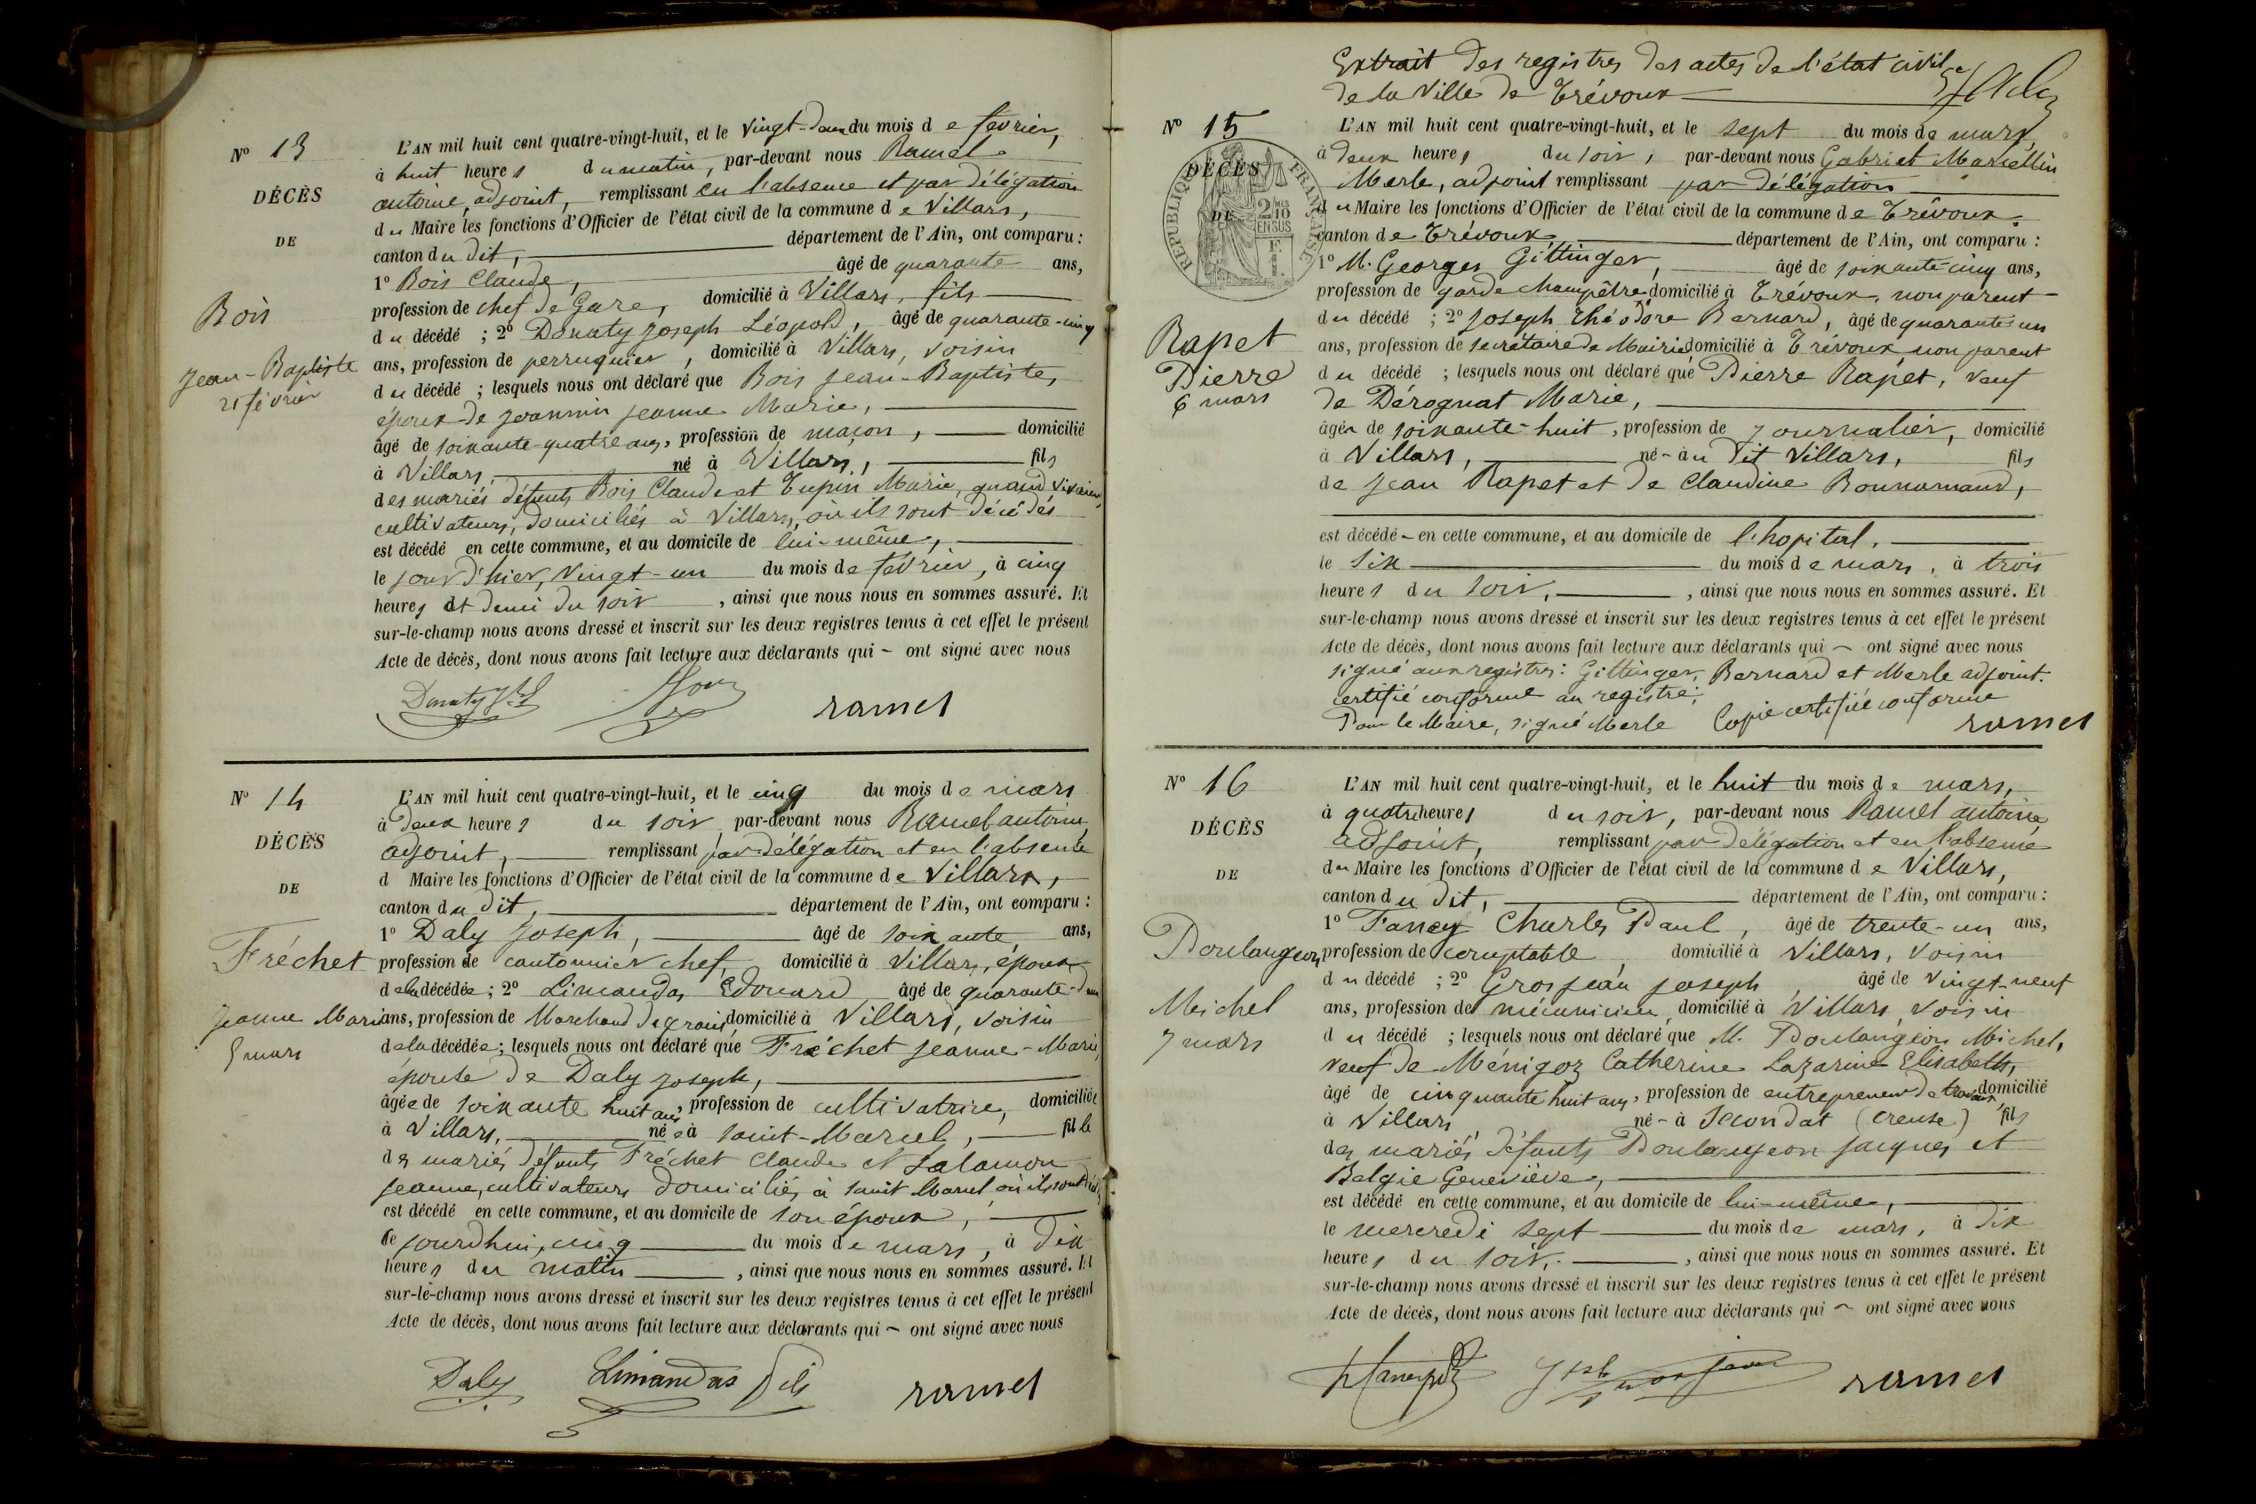 N° 13
DÉCÈS
DE
Bois
Jean-Baptiste
21 février
L'AN mil huit cent quatre-vingt-huit, et le vingt-deux du mois de février,
à huit heures du matin, par-devant nous Ramel
antoine, adjoint, remplissant en l'absence et par délégation
du Maire les fonctions d'Officier de l'état civil de la commune de Villars,
canton du dit, département de l'Ain, ont comparu :
1° Bois Claude, âgé de quarante ans,
profession de chef de Gare, domicilié à Villars, fils
du décédé ; 2° Donaty Joseph Léopold, âgé de quarante-cinq
ans, profession de perruquier, domicilié à Villars, voisin
du décédé ; lesquels nous ont déclaré que Bois Jean-Baptiste,
époux de Joannin Jeanne Marie,
âgé de soixante-quatre ans, profession de maçon, domicilié
à Villars, né à Villars, fils
des mariés défunts Bois Claude et Tupin Marie, quand vivaient
cultivateurs, domiciliés à Villars, où ils sont décédés
est décédé en cette commune, et au domicile de lui-même,
le jour d'hier, vingt-un du mois de février, à cinq
heures et demi du soir, ainsi que nous nous en sommes assuré. Et
sur-le-champ nous avons dressé et inscrit sur les deux registres tenus à cet effet le présent
Acte de décès, dont nous avons fait lecture aux déclarants qui ~ ont signé avec nous
Donaty ramel
N° 14
DÉCÈS
DE
Fréchet
Jeanne Marie
5 mars
L'AN mil huit cent quatre-vingt-huit, et le cinq du mois de mars
à deux heures du soir, par-devant nous Ramel antoine,
adjoint, remplissant par délégation et en l'absence
d Maire les fonctions d'Officier de l'état civil de la commune de Villars,
canton du dit, département de l'Ain, ont comparu :
1° Daly Joseph, âgé de soixante ans,
profession de cantonnier chef, domicilié à Villars, époux
de la décédée ; 2° Limandas Edouard âgé de quarante-deux
ans, profession de Marchand de grains, domicilié à Villars, voisin
de la décédée ; lesquels nous ont déclaré que Fréchet Jeanne-Marie,
épouse de Daly Joseph,
âgée de soixante huit ans, profession de cultivatrice, domiciliée
à Villars, née à saint-Marcel, fille
des mariés défunts Fréchet Claude et Salamon
Jeanne, cultivateurs domiciliés à saint Marcel où ils sont
est décédé en cette commune, et au domicile de son époux,
le jourd'hui, cinq du mois de mars, à dix
heures du matin, ainsi que nous nous en sommes assuré. Et
sur-le-champ nous avons dressé et inscrit sur les deux registres tenus à cet effet le présent
Acte de décès, dont nous avons fait lecture aux déclarants qui ~ ont signé avec nous
Daly Limandas fils ramel
Extrait des registres des actes de l'état civil
de la Ville de Trévoux
N° 15
DÉCÈS
DE
RÉPUBLIQUE FRANÇAISE
2/10 EN SUS
Rapet
Pierre
6 mars
L'AN mil huit cent quatre-vingt-huit, et le sept du mois de mars,
à deux heures du soir, par-devant nous Gabriel Marcellin
Merle, adjoint remplissant par délégation
du Maire les fonctions d'Officier de l'état civil de la commune de Trévoux.
canton de Trévoux département de l'Ain, ont comparu :
1° M. Georges Gittinger, âgé de soixante-cinq ans,
profession de garde champêtre, domicilié à Trévoux, non parent
du décédé ; 2° Joseph Théodore Bernard, âgé de quarante-un
ans, profession de secrétaire de Mairie, domicilié à Trévoux non parent
du décédé ; lesquels nous ont déclaré que Pierre Rapet, veuf
de Dérognat Marie,
âgé de soixante-huit, profession de journalier, domicilié
à Villars, né-au dit Villars, fils
de Jean Rapet et de Claudine Bonnamand,
est décédé - en cette commune, et au domicile de l'hopital,
le six du mois de mars, à trois
heures du soir, ainsi que nous nous en sommes assuré. Et
sur-le-champ nous avons dressé et inscrit sur les deux registres tenus à cet effet le présent
Acte de décès, dont nous avons fait lecture aux déclarants qui ~ ont signé avec nous
signé aux registres : Gittinger, Bernard et Merle adjoint.
certifié conforme au registre ;
Pour le Maire, signé Merle Copie certifiée conforme
ramel
N° 16
DÉCÈS
DE
Doulangeon
Michel
7 mars
L'AN mil huit cent quatre-vingt-huit, et le huit du mois de mars,
à quatre heures du soir, par-devant nous Ramel antoine
adjoint, remplissant par délégation et en l'absence
du Maire les fonctions d'Officier de l'état civil de la commune de Villars,
canton du dit, département de l'Ain, ont comparu :
1° Fancy Charles Paul, âgé de trente-un ans,
profession de comptable, domicilié à Villars, voisin
du décédé ; 2° Grosjean Joseph, âgé de vingt-neuf
ans, profession de mécanicien, domicilié à Villars voisin
du décédé ; lesquels nous ont déclaré que M. Doulangeon Michel,
veuf de Ménigoz Catherine Lazarine Elisabeth,
âgé de cinquante huit ans, profession de entrepreneur de travaux, domicilié
à Villars, né-à Secondat (Creuse) fils
des mariés défunts Doulangeon Jacques et
Belgie Geneviève,
est décédé en cette commune, et au domicile de lui-même,
le mercredi sept du mois de mars, à dix
heures du soir, ainsi que nous nous en sommes assuré. Et
sur-le-champ nous avons dressé et inscrit sur les deux registres tenus à cet effet le présent
Acte de décès, dont nous avons fait lecture aux déclarants qui ~ ont signé avec nous
ramel